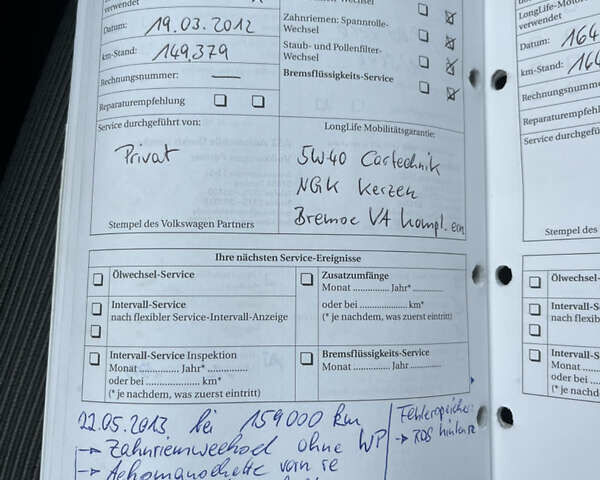 verwendet
Datum: 19.03.2012
km-Stand: 149.379
Rechnungsnummer: —
Reparaturempfehlung
Zahnriemen: Spannrolle-
Wechsel
Staub- und Pollenfilter-
Wechsel
Bremsflüssigkeits-Service
Service durchgeführt von:
Privat
Stempel des Volkswagen Partners
LongLife Mobilitätsgarantie:
5W40 Cartechnik
NGK Kerzen
Bremse VA kompl. ern
Ihre nächsten Service-Ereignisse
Ölwechsel-Service
Intervall-Service
nach flexibler Service-Intervall-Anzeige
Intervall-Service Inspektion
Monat .............. Jahr*..............
oder bei ................... km*
(* je nachdem, was zuerst eintritt)
Zusatzumfänge
Monat ............... Jahr*..............
oder bei .................... km*
(* je nachdem, was zuerst eintritt)
Bremsflüssigkeits-Service
Monat .............. Jahr..............
22.05.2013 bei 159000 km
→ Zahnriemwechsel ohne WP
→ Achsmanschette vorn re
Fehlerspeicher
→
LongLife-Motor
verwendet
Datum: 164
km-Stand: 164
Rechnungsnumme
Reparaturempfehl
Service durchgefüh
Stempel des
Ölwechsel-
Intervall-S
nach flexibl
Intervall-S
Monat
oder bei
(* je nachde